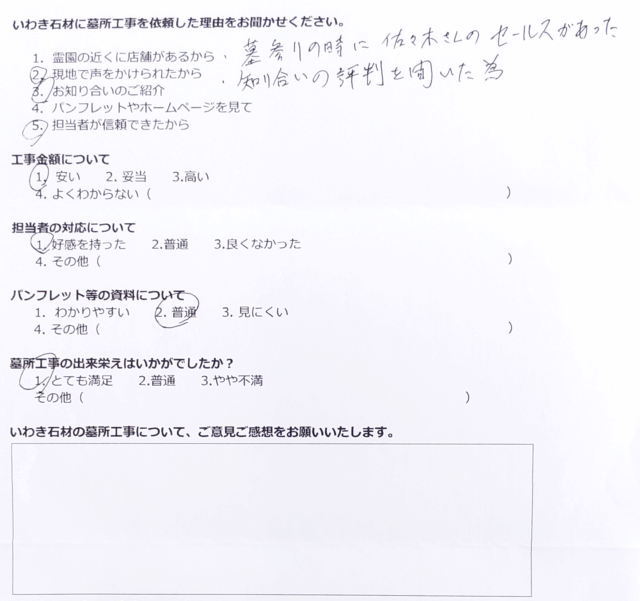 いわき石材に墓所工事を依頼した理由をお聞かせください。
1. 霊園の近くに店舗があるから
・墓参りの時に佐々木さんのセールスがあった
2. 現地で声をかけられたから
・知り合いの評判を聞いた為
3. お知り合いのご紹介
4. パンフレットやホームページを見て
5. 担当者が信頼できたから
工事金額について
1. 安い 2. 妥当 3.高い
4. よくわからない（ ）
担当者の対応について
1. 好感を持った 2.普通 3.良くなかった
4. その他（ ）
パンフレット等の資料について
1. わかりやすい 2. 普通 3. 見にくい
4. その他（ ）
墓所工事の出来栄えはいかがでしたか？
1. とても満足 2.普通 3.やや不満
その他（ ）
いわき石材の墓所工事について、ご意見ご感想をお願いいたします。